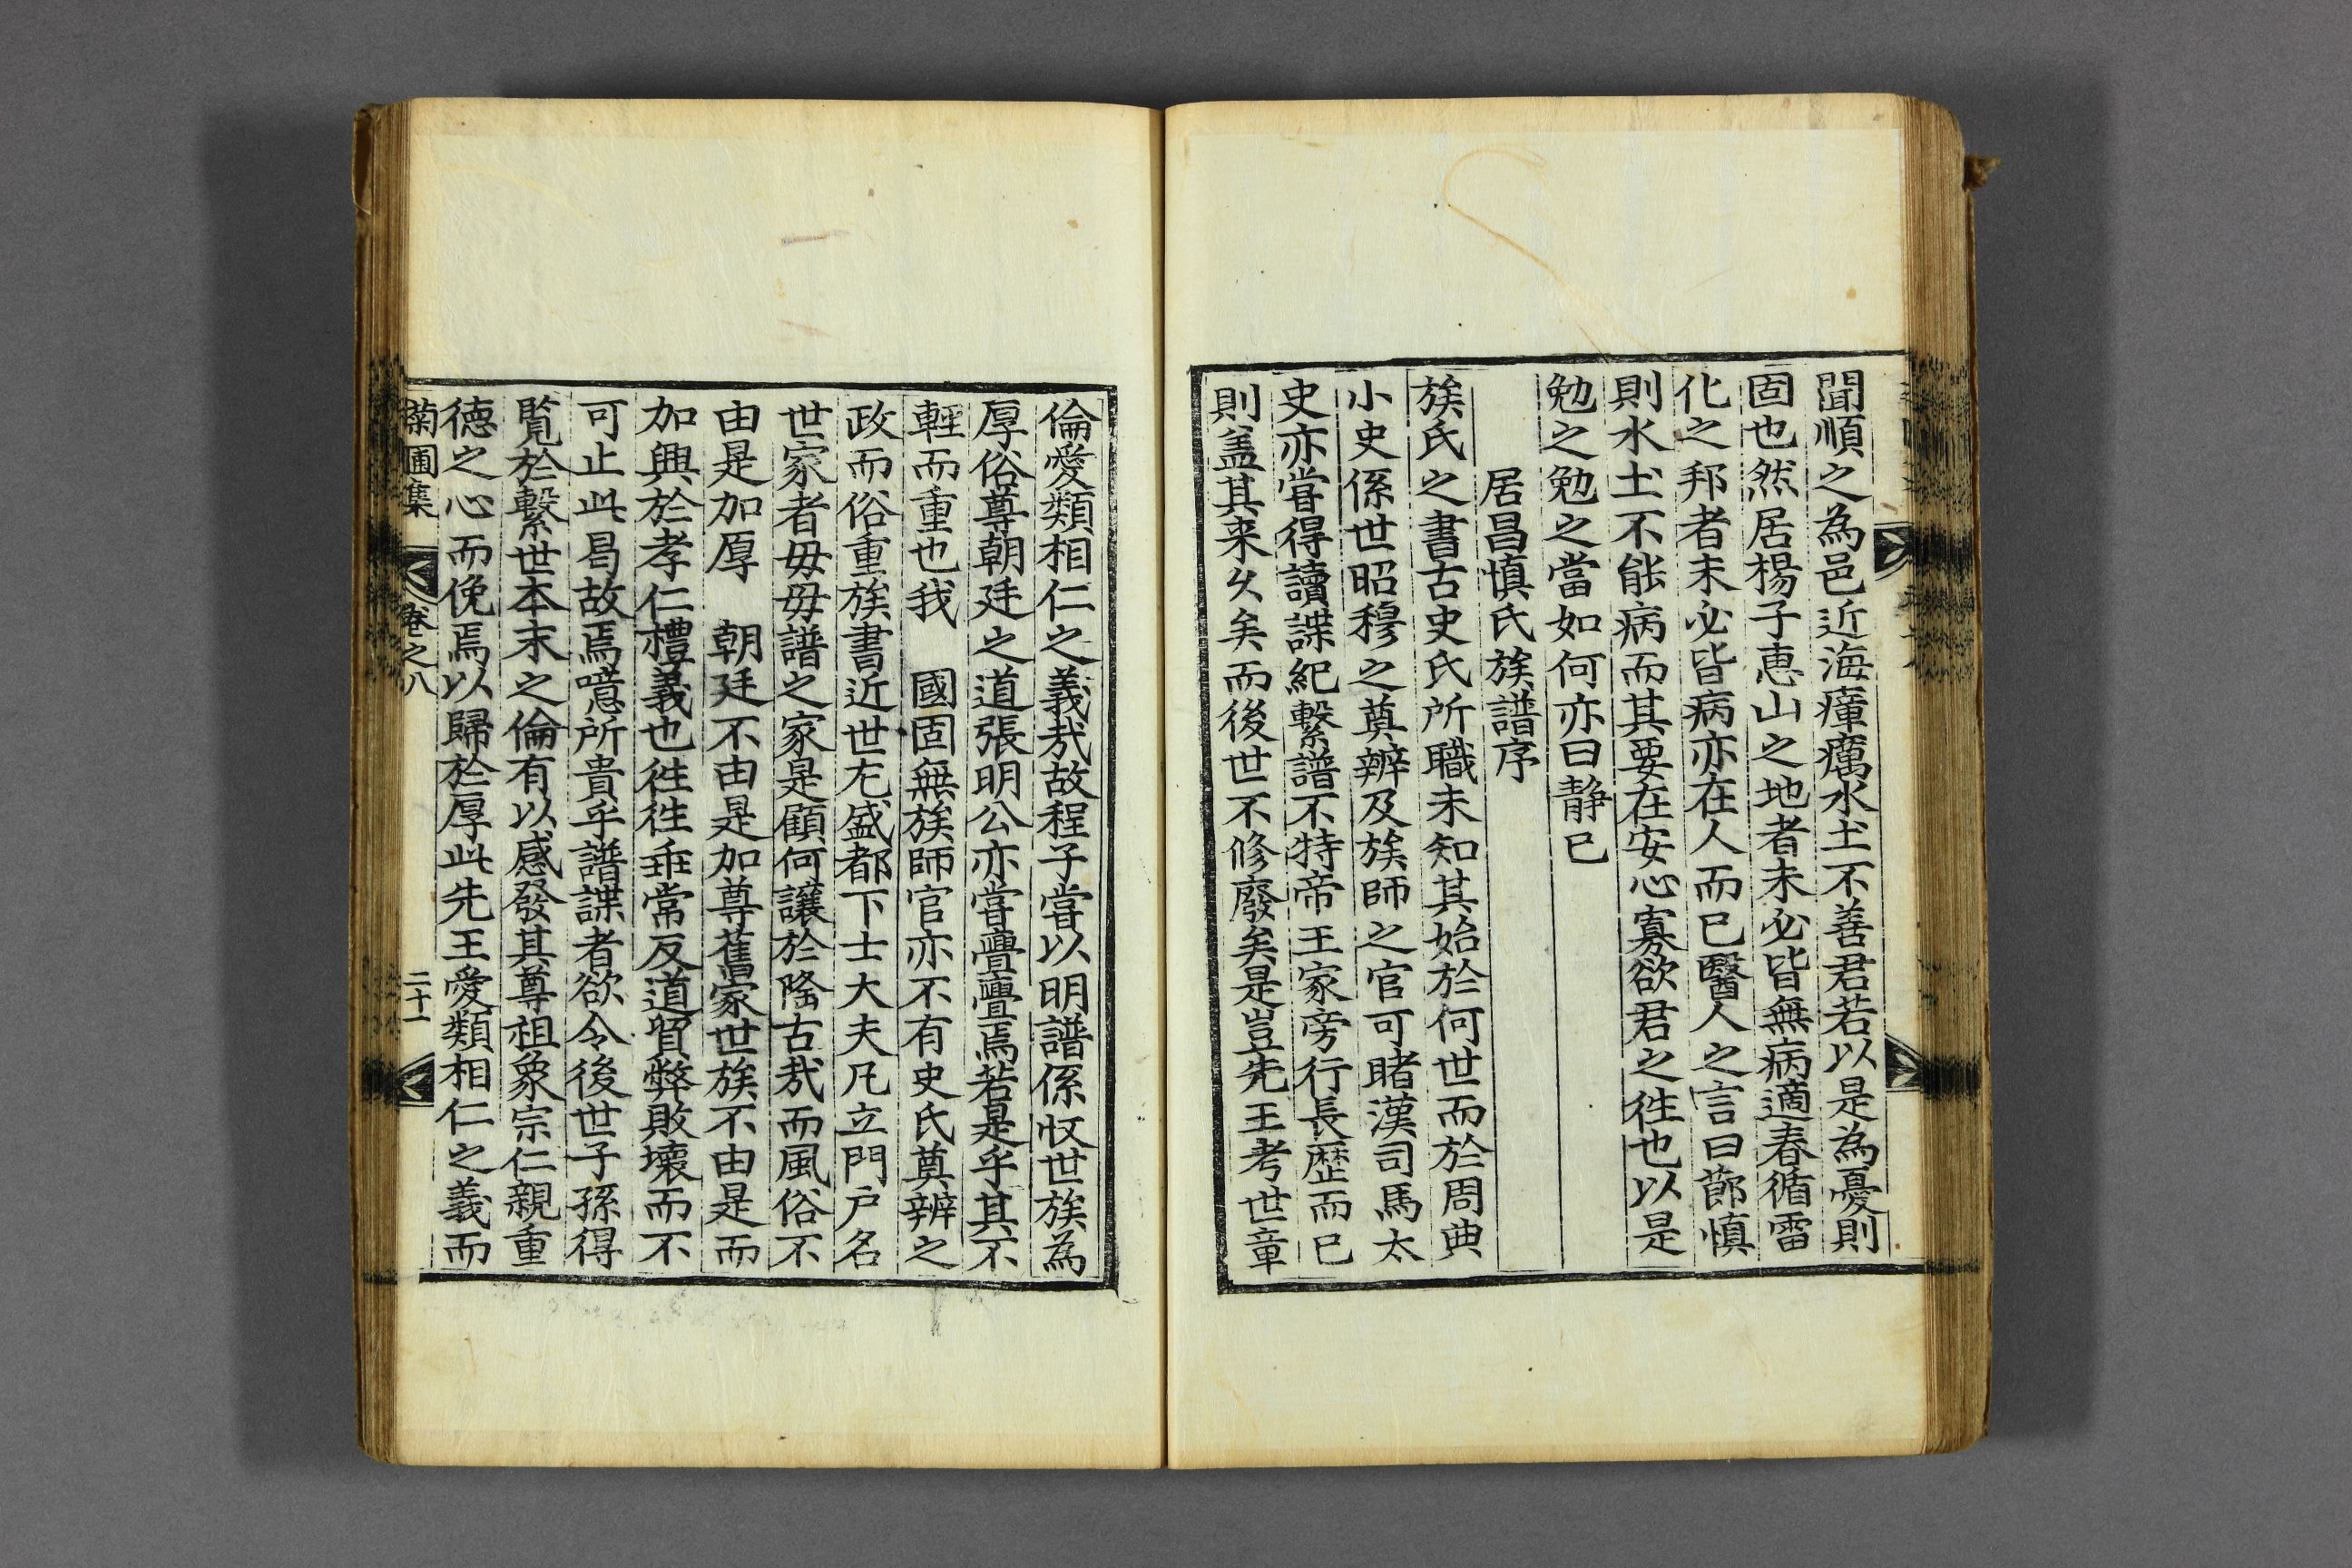 聞順之為邑近海瘴癘水土不善君若以是為憂則
固也然居楊子惠山之地者未必皆無病適春循雷
化之邦者未必皆病亦在人而已醫人之言曰節慎
則水土不能病而其要在安心寡欲君之往也以是
勉之勉之當如何亦曰靜已
居昌慎氏族譜序
族氏之書古史氏所職未知其始於何世而於周典
小史係世昭穆之奠辨及族師之官可睹漢司馬太
史亦嘗得讀諜紀繫譜不特帝王家旁行長歷而已
則盖其来久矣而後世不修廢矣是豈先王考世章
倫愛類相仁之義㢤故程子嘗以明譜係收世族為
厚俗尊朝廷之道張明公亦嘗亹亹焉若是乎其不
輕而重也我 國固無族師官亦不有史氏奠辨之
政而俗重族書近世尤盛都下士大夫凡立門戶名
世家者毋毋譜之家是顧何讓於隆古㢤而風俗不
由是加厚 朝廷不由是加尊舊家世族不由是而
加興於孝仁禮義也徃徃乖常反道貿弊敗壞而不
可止此曷故焉噫所貴乎譜諜者欲令後世子孫得
覧於繫世本末之倫有以感發其尊祖象宗仁親重
德之心而俛焉以歸於厚此先王愛類相仁之義而
菊圃集 卷之八 二十一